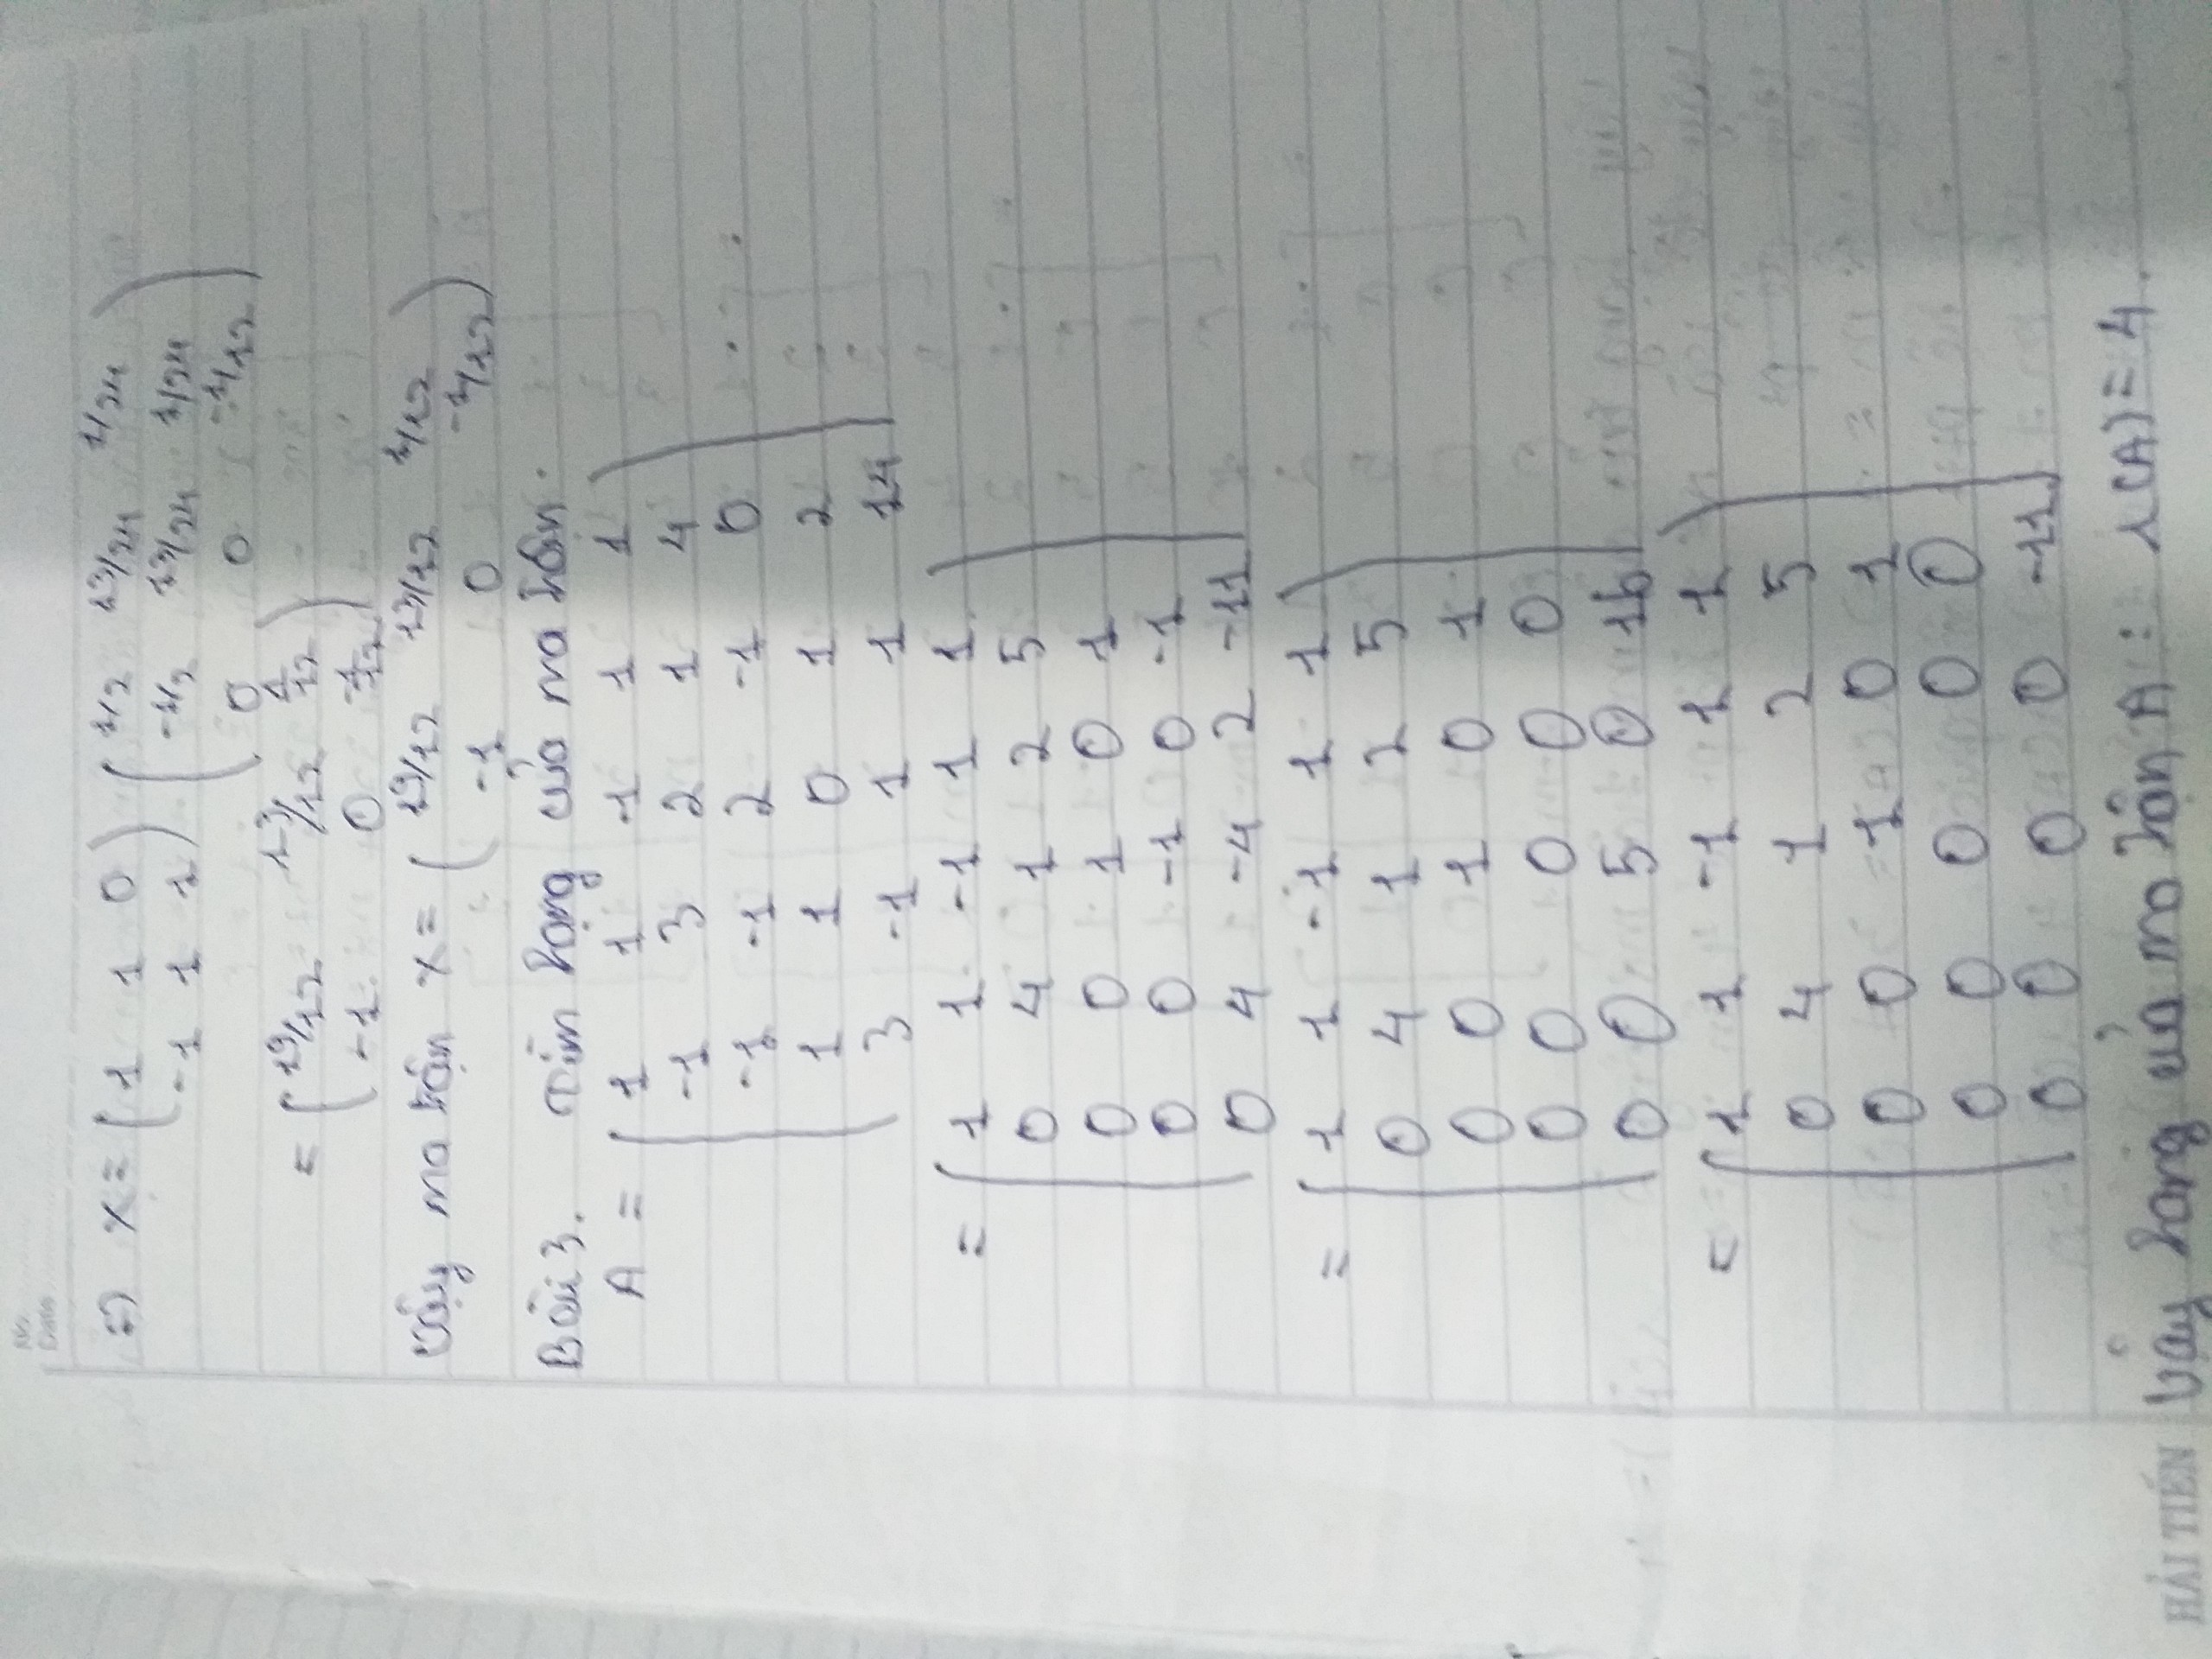 No.
Date
=) X = ( 1 1 0 ) ( 1/2 13/24 13/24 1/24 )
-1 1 1 -1/2 13/24 1/24
0 0 -1/12
= ( 19/12 13/12 1/12 )
-1 0 -1/12
Vậy ma trận X = ( 19/12 13/12 1/12 )
-1 0 -1/12
Bài 3. Tìm hạng của ma trận.
A = ( 1 1 -1 1 1 )
-1 3 2 1 4
-1 -1 2 -1 0
1 1 0 1 2
3 -1 1 1 14
= ( 1 1 -1 1 1 )
0 4 1 2 5
0 0 1 0 1
0 0 -1 0 -1
0 4 -4 2 -11
= ( 1 1 -1 1 1 )
0 4 1 2 5
0 0 1 0 1
0 0 0 0 0
0 0 5 0 16
= ( 1 1 -1 1 1 )
0 4 1 2 5
0 0 1 0 1
0 0 0 0 0
0 0 0 0 -11
Vậy hạng của ma trận A: r(A) = 4.
HẢI TIẾN